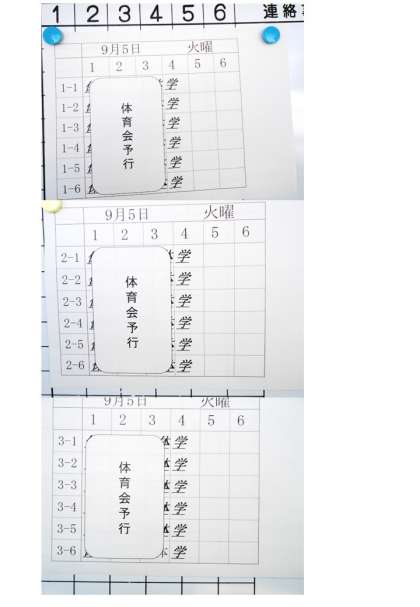 1 2 3 4 5 6 連絡
9月5日 火曜
1 2 3 4 5 6
1-1 学
1-2 学
1-3 学
1-4 学
1-5 学
1-6 学
体育会予行
9月5日 火曜
1 2 3 4 5 6
2-1 学
2-2 学
2-3 学
2-4 学
2-5 学
2-6 学
体育会予行
9月5日 火曜
1 2 3 4 5 6
3-1 体学
3-2 体学
3-3 体学
3-4 体学
3-5 体学
3-6 体学
体育会予行